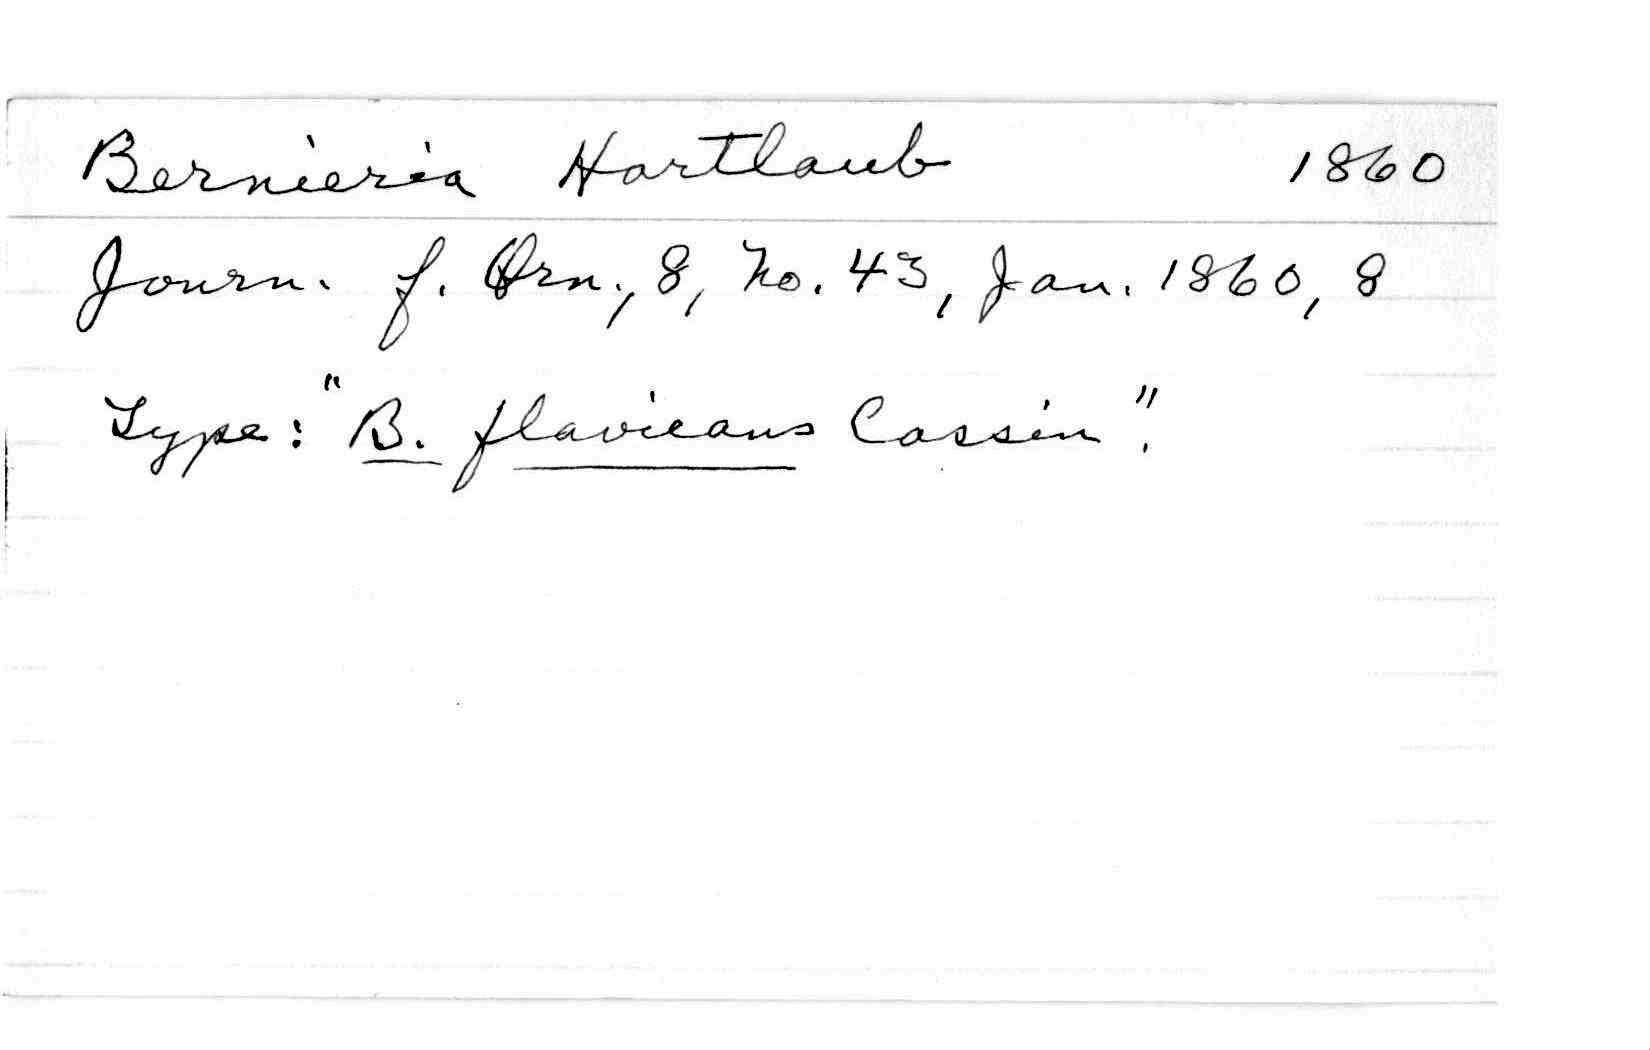 Bernieria Hartlaub 1860
Journ. f. Orn., 8, No. 43, Jan. 1860, 8
Type: "B. flavicans Cassin".